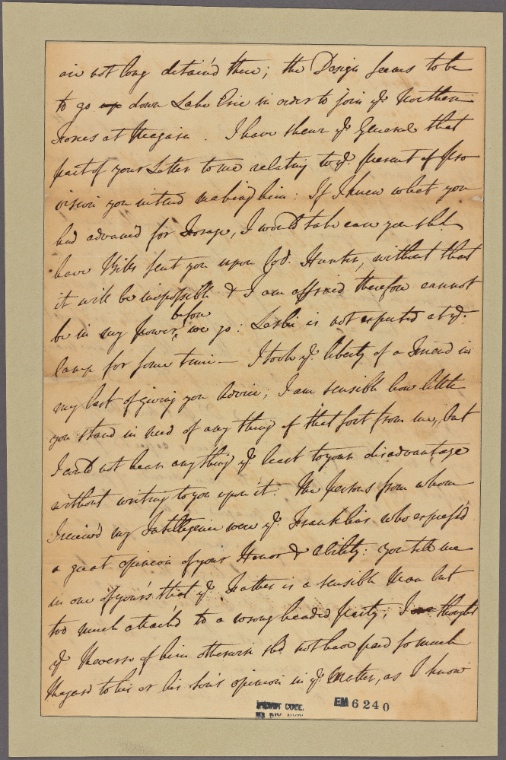 are not long detain'd there; the Design seems to be
to go up down Lake Erie in order to join ye Northern
Forces at Niagara. I have shewn ye General that
part of your Letter to me relating to ye present of Pro
vision you intend making him: If I knew what you
had advanced for Forage, I would take care you shd.
have Bills sent you upon Govr. Hunter, without that
it will be impossible & I am affraid therefore cannot
before
be in my power, we go: Leslie is not expected at ye.
Camp for some time — I took ye liberty of a Friend in
my last of giving you Advice, I am sensible how little
you stand in need of any thing of that sort from me, but
I could not hear any thing ye least to your disadvantage
without writing to you upon it: The Persons from whom
I received my Intelligence were ye Franklins who express'd
a great opinion of your Honor & Ability: you tell me
in one of yours that ye Father is a sensible Man but
too much attach'd to a wrong headed party; I thought
ye Reverse of him otherwise shd. not have paid so much
Regard to his or his Son's opinion in ye Matter, as I know
EMMET COLL.
EM 6240